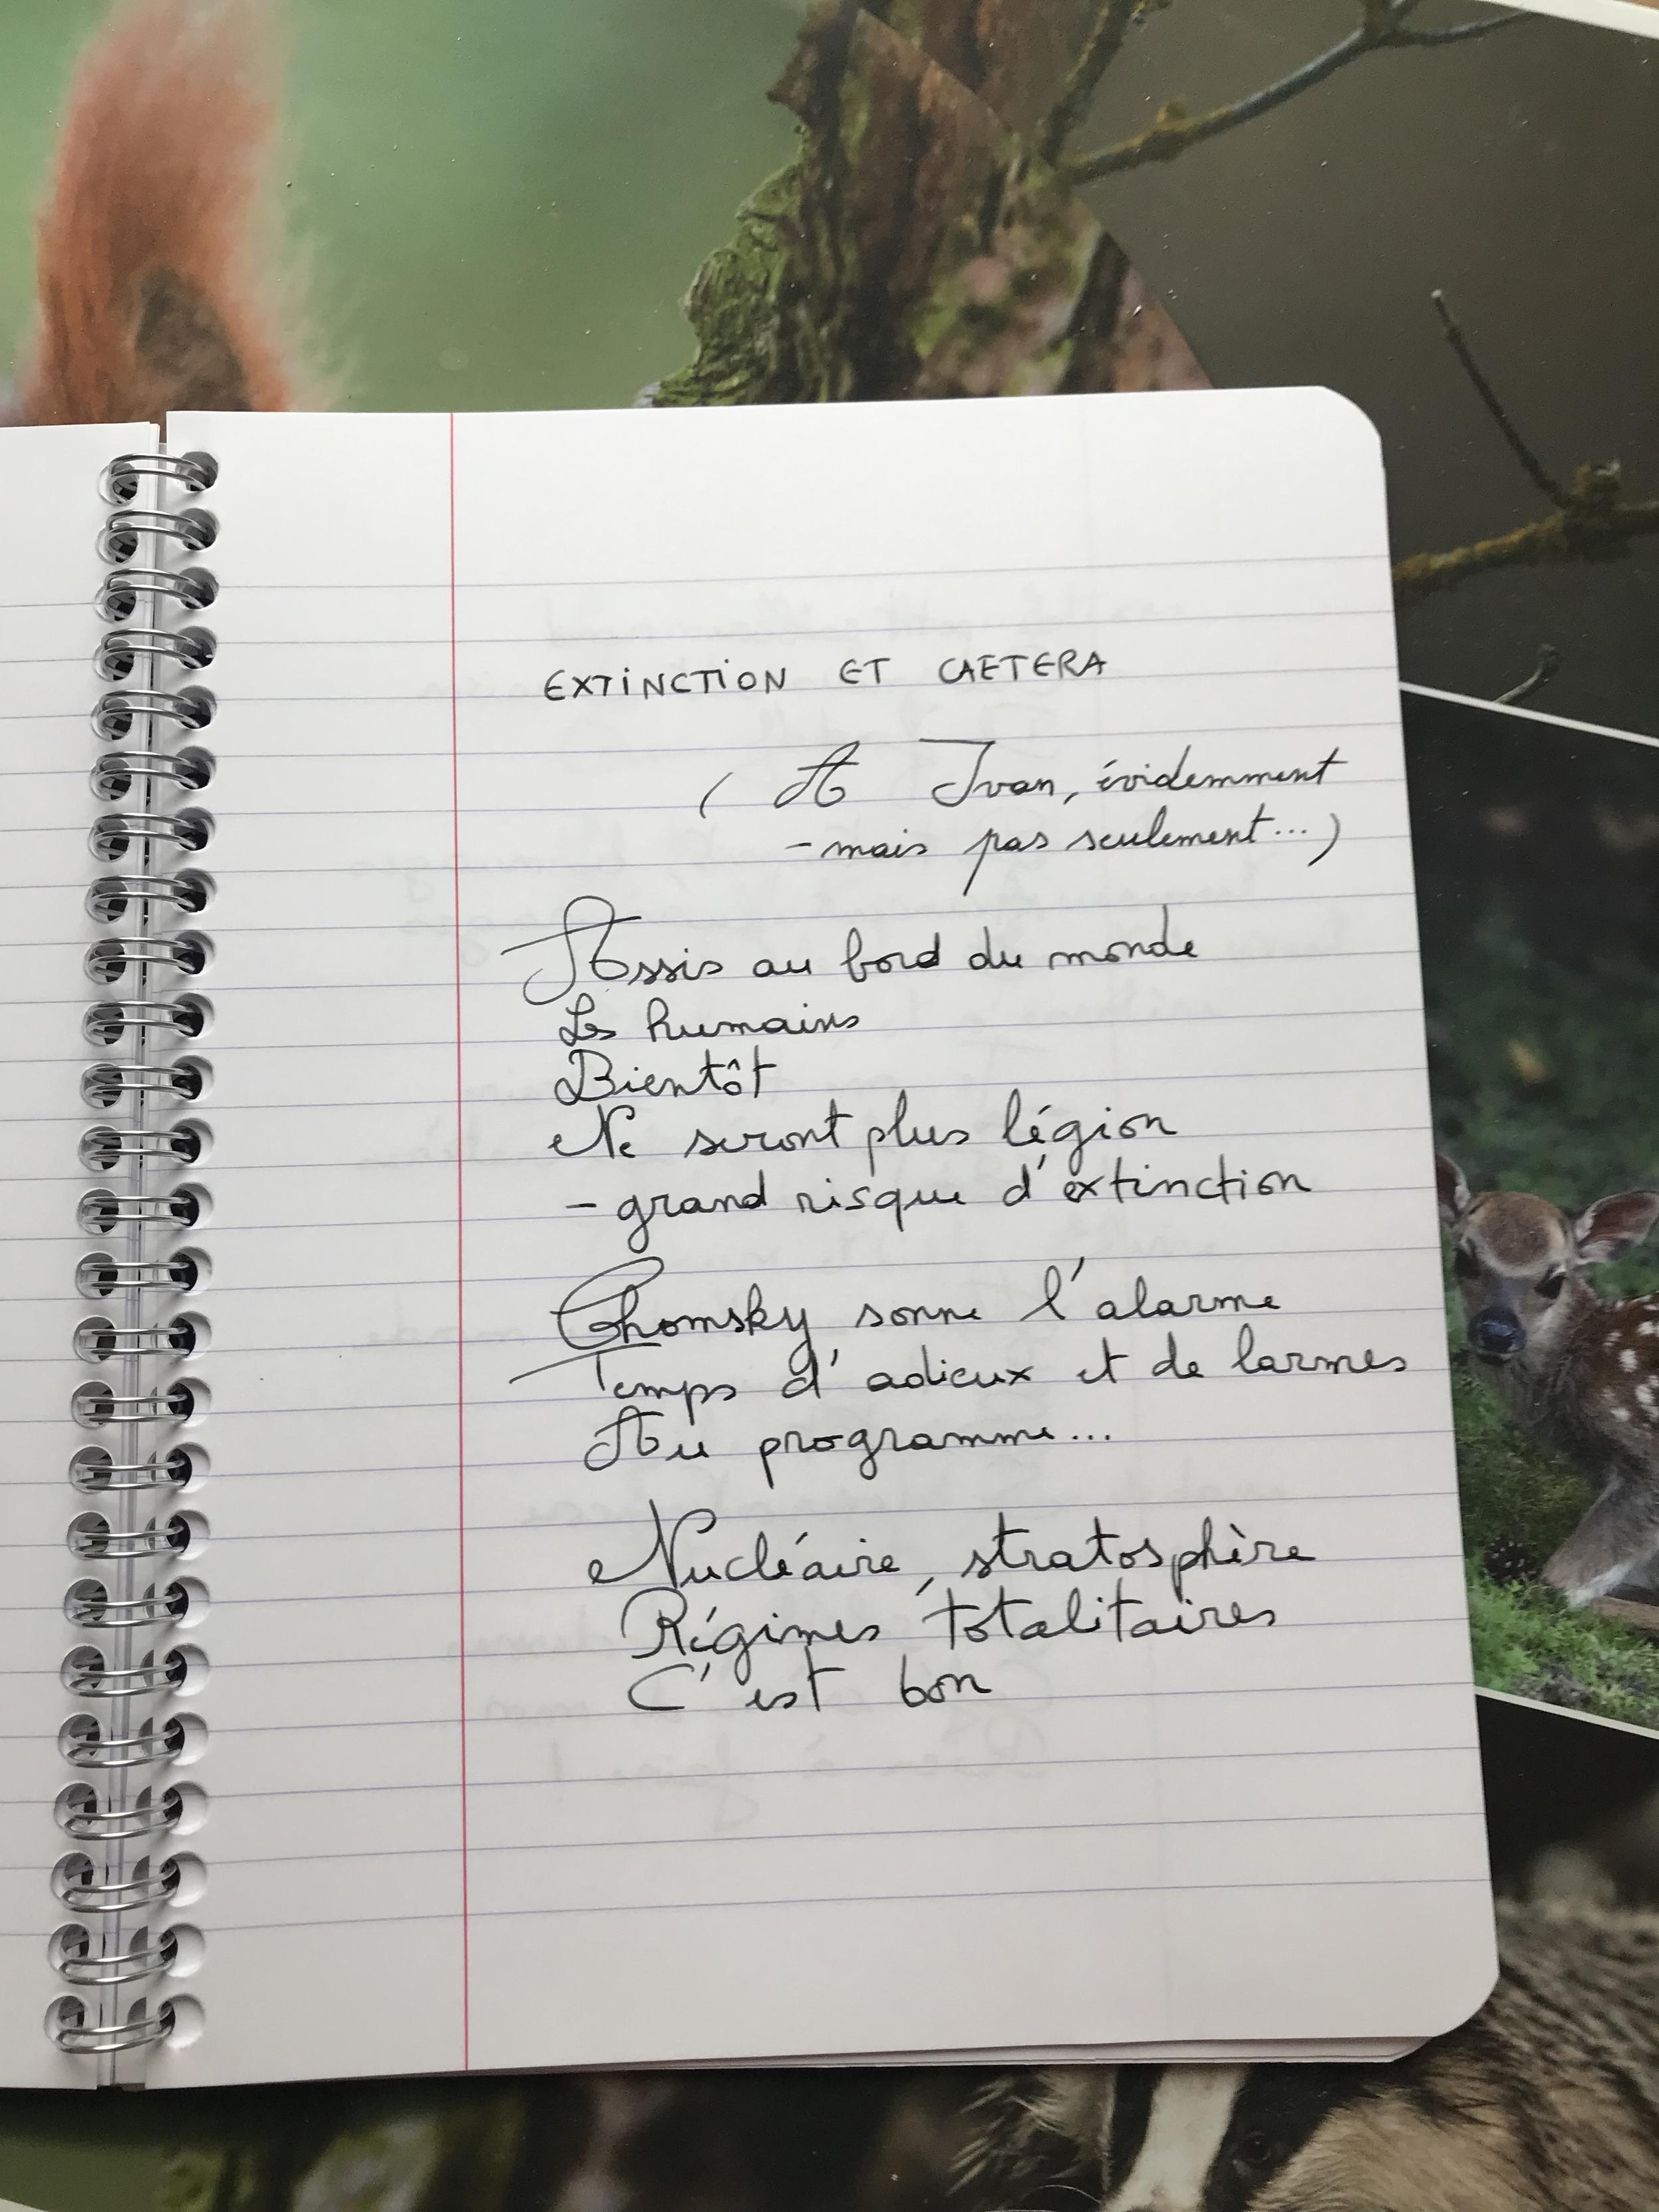 EXTINCTION ET CAETERA
( A Ivan, évidemment
- mais pas seulement... )
Assis au bord du monde
Les humains
Bientôt
Ne seront plus légion
- grand risque d'extinction
Chomsky sonne l'alarme
Temps d'adieux et de larmes
Au programme...
Nucléaire, stratosphère
Régimes totalitaires
C'est bon